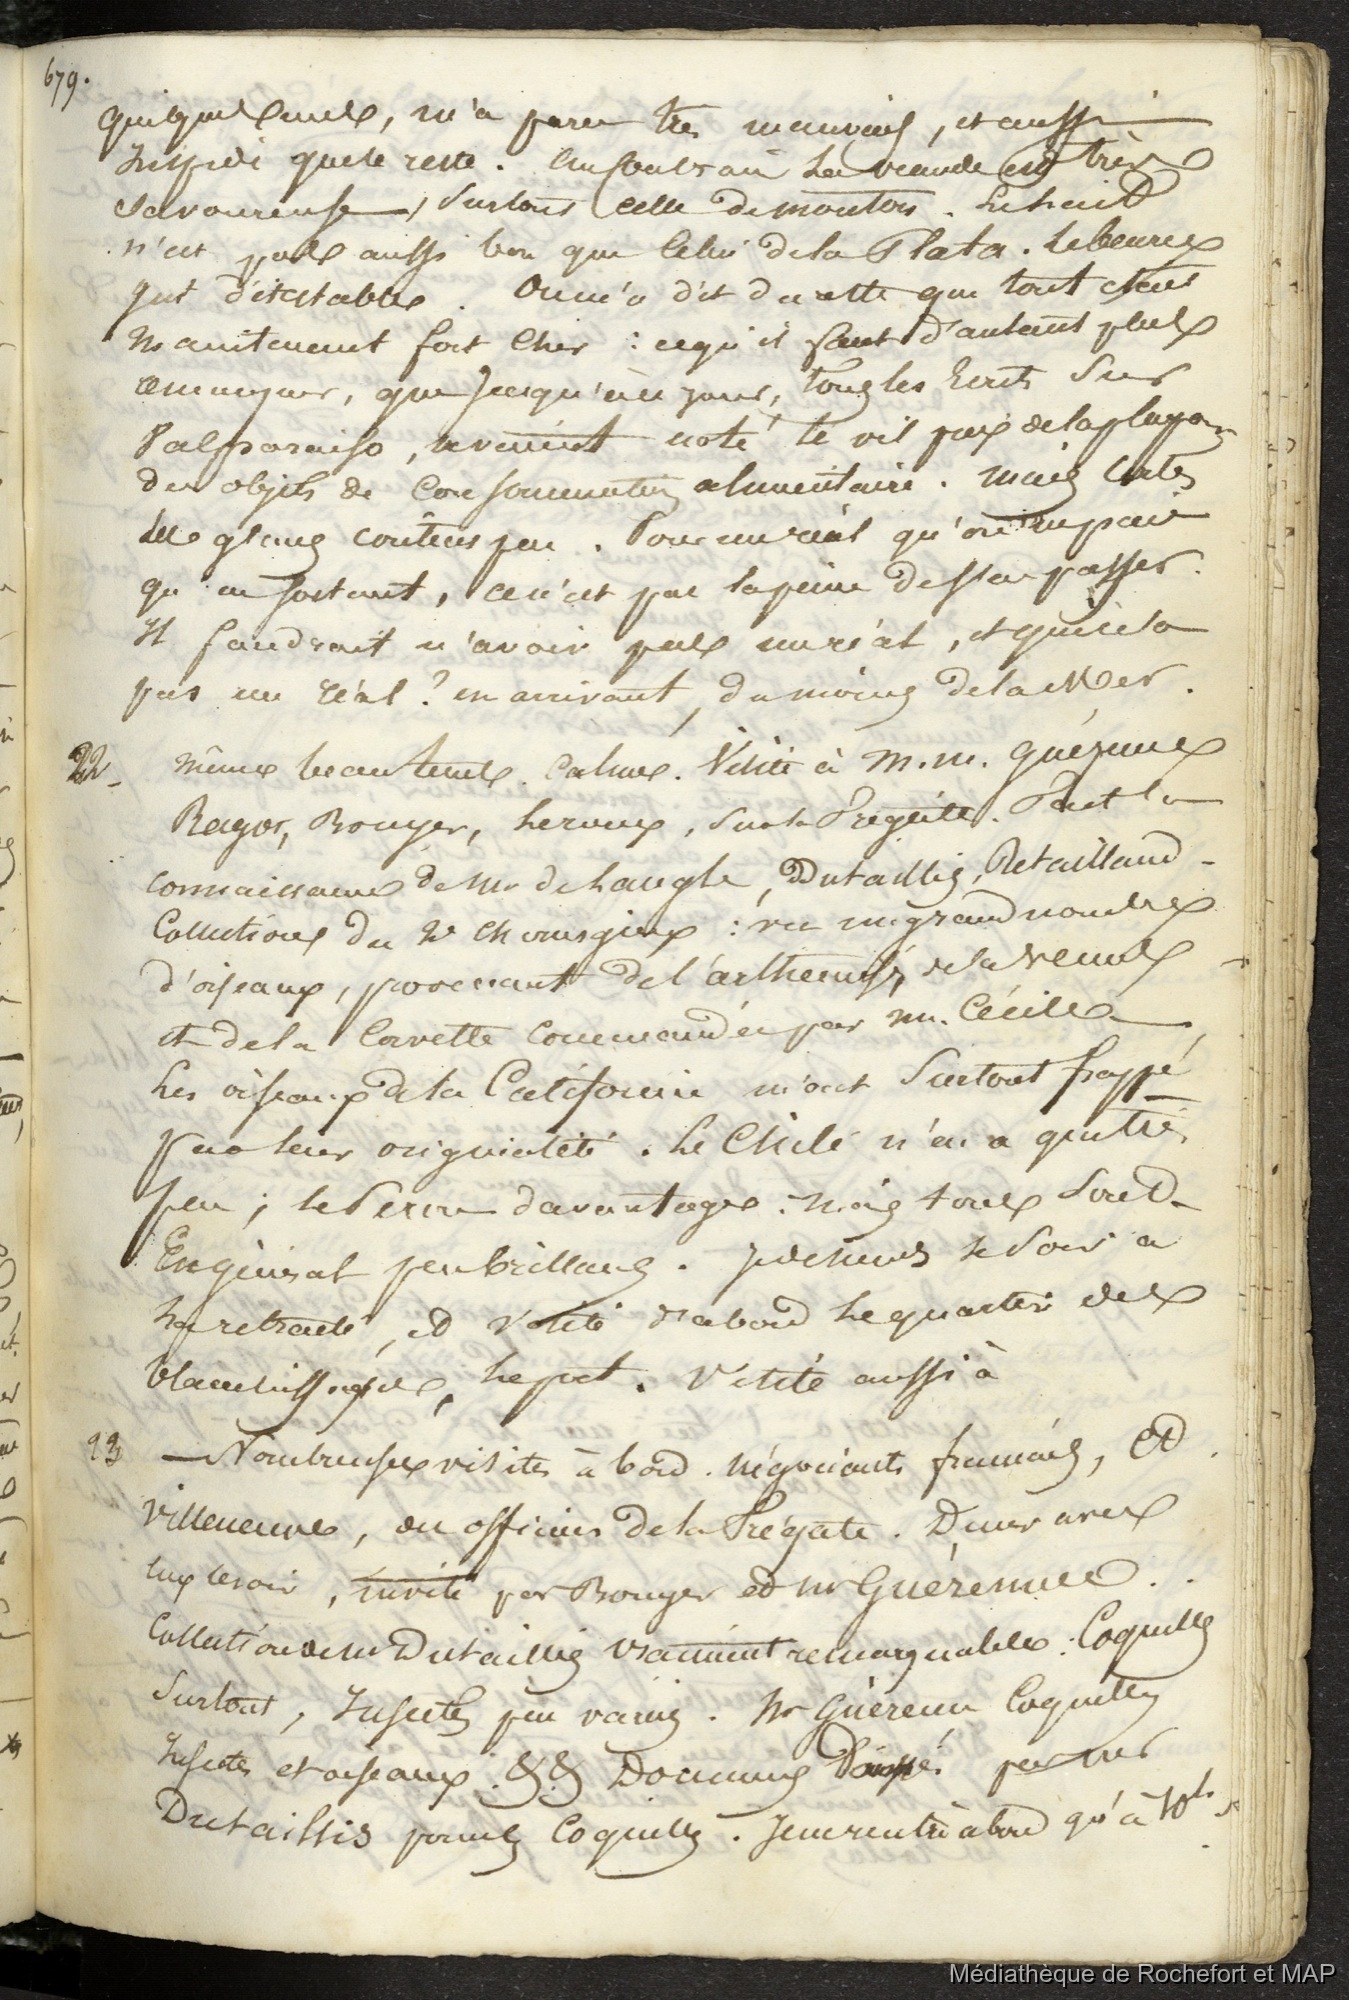 679.
quelques uns, m'a paru très mauvais, et aussi
insipide que le reste. la viande est très
savoureuse, surtout celle de mouton. Le lait
n'est pas aussi bon que celui de la Plata. Le beurre
est détestable. On m'a dit du reste que tout était
maintenant fort cher : ce qu'il faut d'autant plus
remarquer, que jusqu'à ce jour, tous les écrits sur
Valparaiso, avaient noté le vil prix de la plupart
des objets de consommation alimentaire. Mais certes
les glaces coûtent peu. Pour un réal qu'on ne paie
qu'en sortant, ce n'est pas la peine de s'en passer.
Il faudrait n'avoir pas un réal, et qui n'a
pas un réal ? en arrivant, du moins de la mer.
22 - Même beau tems. Calme. Visite à M.M. Guérenne
Rager, Bouyer, Leroux, sur la Frégate. Fait la
connaissance de Mr de Langle, Dutaillis, Retailland -
Collections du Mr Chirurgien : vu un grand nombre
d'oiseaux, provenant de l'arthémise, de la Vénus
et de la Corvette commandée par M. Cécille
Les oiseaux de la Californie m'ont surtout frappé
par leur originalité. Le Chili n'en a que très
peu ; le Pérou davantage : mais tous sont
En général peu brillans. Je descends le soir à
la retraite, et visite d'abord le quartier des
blanchisseuses, le port. Visite aussi à
23 — Nombreuses visites à bord. négociants français, et
Villeneuve, ou officiers de la Frégate. Diner avec
eux le soir, invité par Bouyer et Mr Guérenne.
Collection de Mr Dutaillis vraiment remarquable : Coquilles
surtout, Insectes peu variés. Mr Guérenne Coquilles
Insectes et oiseaux. && Donnans par Mr
Dutaillis pour les Coquilles. Je ne rentre à bord qu'à 10h
Médiathèque de Rochefort et MAP